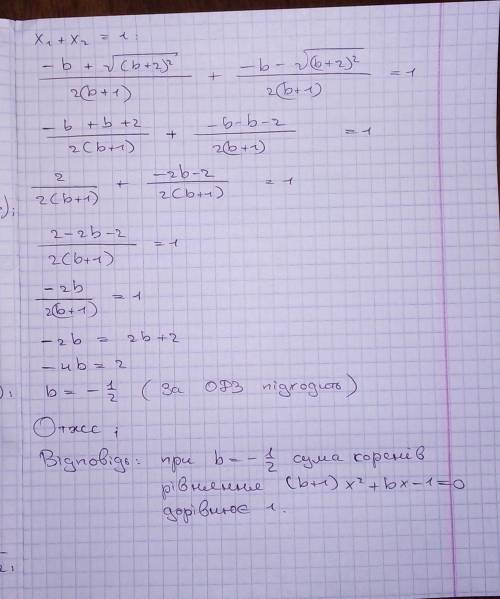 x₁ + x₂ = 1:
(-b + √(b+2)²)/(2(b+1)) + (-b - √(b+2)²)/(2(b+1)) = 1
(-b + b + 2)/(2(b+1)) + (-b-b-2)/(2(b+1)) = 1
2/(2(b+1)) + (-2b-2)/(2(b+1)) = 1
(2-2b-2)/(2(b+1)) = 1
-2b/(2(b+1)) = 1
-2b = 2b+2
-4b = 2
b = -1/2 (За ОДЗ підходить)
Відповідь: при b = -1/2 сума коренів
рівняння (b+1)x²+bx-1=0
дорівнює 1.